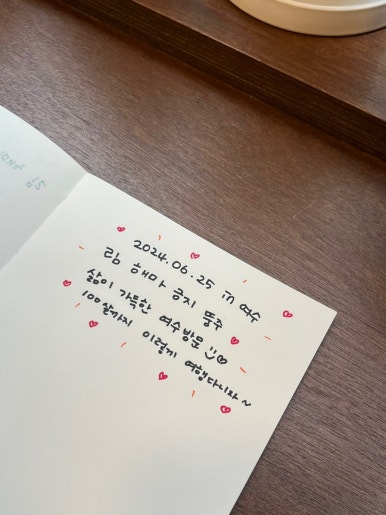 2024.06.25 in 여수
림 해마 긍지 뚱주
삶이 가득한 여수방문
100살까지 이렇게 여행다니자~